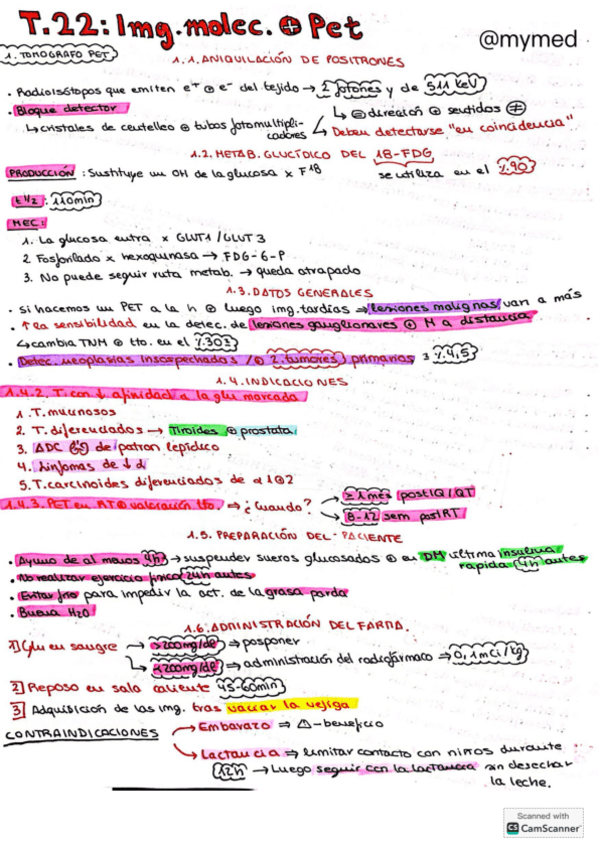 T.22: Img. molec. ⊕ Pet
@mymed
1. TOMOGRAFO PET
1.1. ANIQUILACIÓN DE POSITRONES
· Radioisótopos que emiten e+ ⊕ e- del tejido → 2 fotones y de 511 keV
· Bloque detector
↳ = dirección ⊕ sentidos ≠
↳ cristales de centelleo ⊕ tubos fotomultiplicadores
↳ Deben detectarse "en coincidencia"
1.2. METAB. GLUCÍDICO DEL 18-FDG
se utiliza en el %90
PRODUCCIÓN : Sustituye un OH de la glucosa x F18
t 1/2 : 110min
MEC:
1. La glucosa entra x GLUT1 / GLUT 3
2. Fosforilado x hexoquinasa → FDG-6-P
3. No puede seguir ruta metab. → queda atrapado
1.3. DATOS GENERALES
· Si hacemos un PET a la h ⊕ luego img. tardías ⇒ lesiones malignas van a más
· ↑ la sensibilidad en la detec. de lesiones ganglionares ⊕ M a distancia
↳ cambia TNM ⊕ tto. en el %30
· Detec. neoplasias insospechadas /⊕ 2. tumores primarios %4,5
1.4. INDICACIONES
1.4.2. T. con ↓ afinidad a la glu marcada
1. T. mucinosos
2. T. diferenciados → Tiroides ⊕ prostata
3. ADC de patron lepídico
4. Linfomas de ↓
5. T. carcinoides diferenciados de 1 ⊕ 2
1.4.3. PET en RT ⊕ valoración tto. ⇒ ¿Cuando?
≥ 1 mes post IQ / QT
8-12 sem post RT
1.5. PREPARACIÓN DEL PACIENTE
· Ayuno de al menos 4h → suspender sueros glucosados ⊕ en DM ultima insulina rapida 4h antes
· No realizar ejercicio físico 24h antes
· Evitar frio para impedir la act. de la grasa parda
· Buena H2O
1.6. ADMINISTRACIÓN DEL FARMA.
1) Glu en sangre → >200mg/dl ⇒ posponer
↳ <200mg/dl ⇒ administración del radiofármaco ⇒ 0,1mCi/kg
2) Reposo en sala caliente 45-60min
3) Adquisición de las img. tras vaciar la vejiga
CONTRAINDICACIONES
Embarazo ⇒ ⚠ - beneficio
Lactancia ⇒ limitar contacto con niños durante
12h → Luego seguir con la lactancia sin desechar
la leche.
Scanned with
CS CamScanner